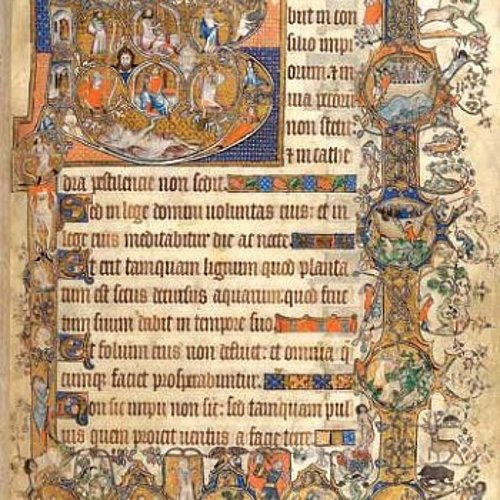 buit in con
silio impi
orum: ⁊ in
uia
non stetit
⁊ in cathe
dra pestilencie non sedit.
Sed in lege domini uoluntas eius: et in
lege eius meditabitur die ac nocte.
Et erit tamquam lignum quod planta
tum est secus decursus aquarum: quod fruc
tum suum dabit in tempore suo.
Et folium eius non defluet: et omnia q
cumq; faciet prosperabuntur.
Non sic impii non sic: sed tamquam pul
uis quem proicit uentus a facie terre.